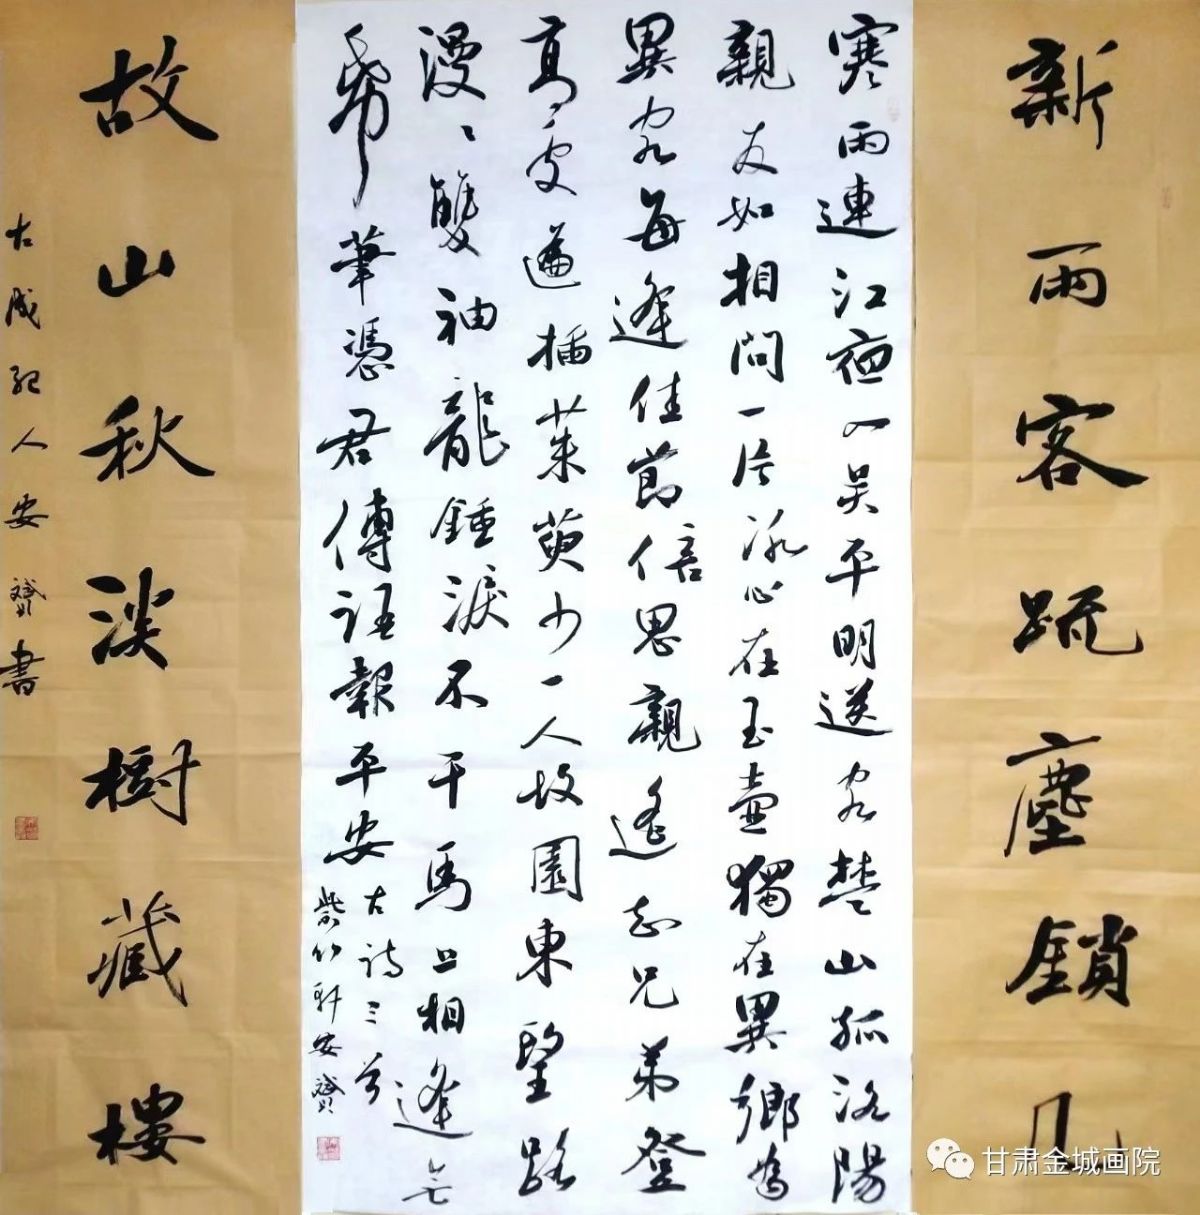 新雨客疏塵鎖几
寒雨連江夜入吴平明送客楚山孤洛陽
親友如相問一片冰心在玉壺獨在異鄉為
異客每逢佳節倍思親遙知兄弟登
高處遍插茱萸少一人故園東望路
漫〻雙袖龍鍾淚不干馬上相逢无
帋筆憑君傳語報平安
古詩三首
紫竹軒安贇
故山秋淡樹藏樓
古成紀人安贇書
甘肃金城画院